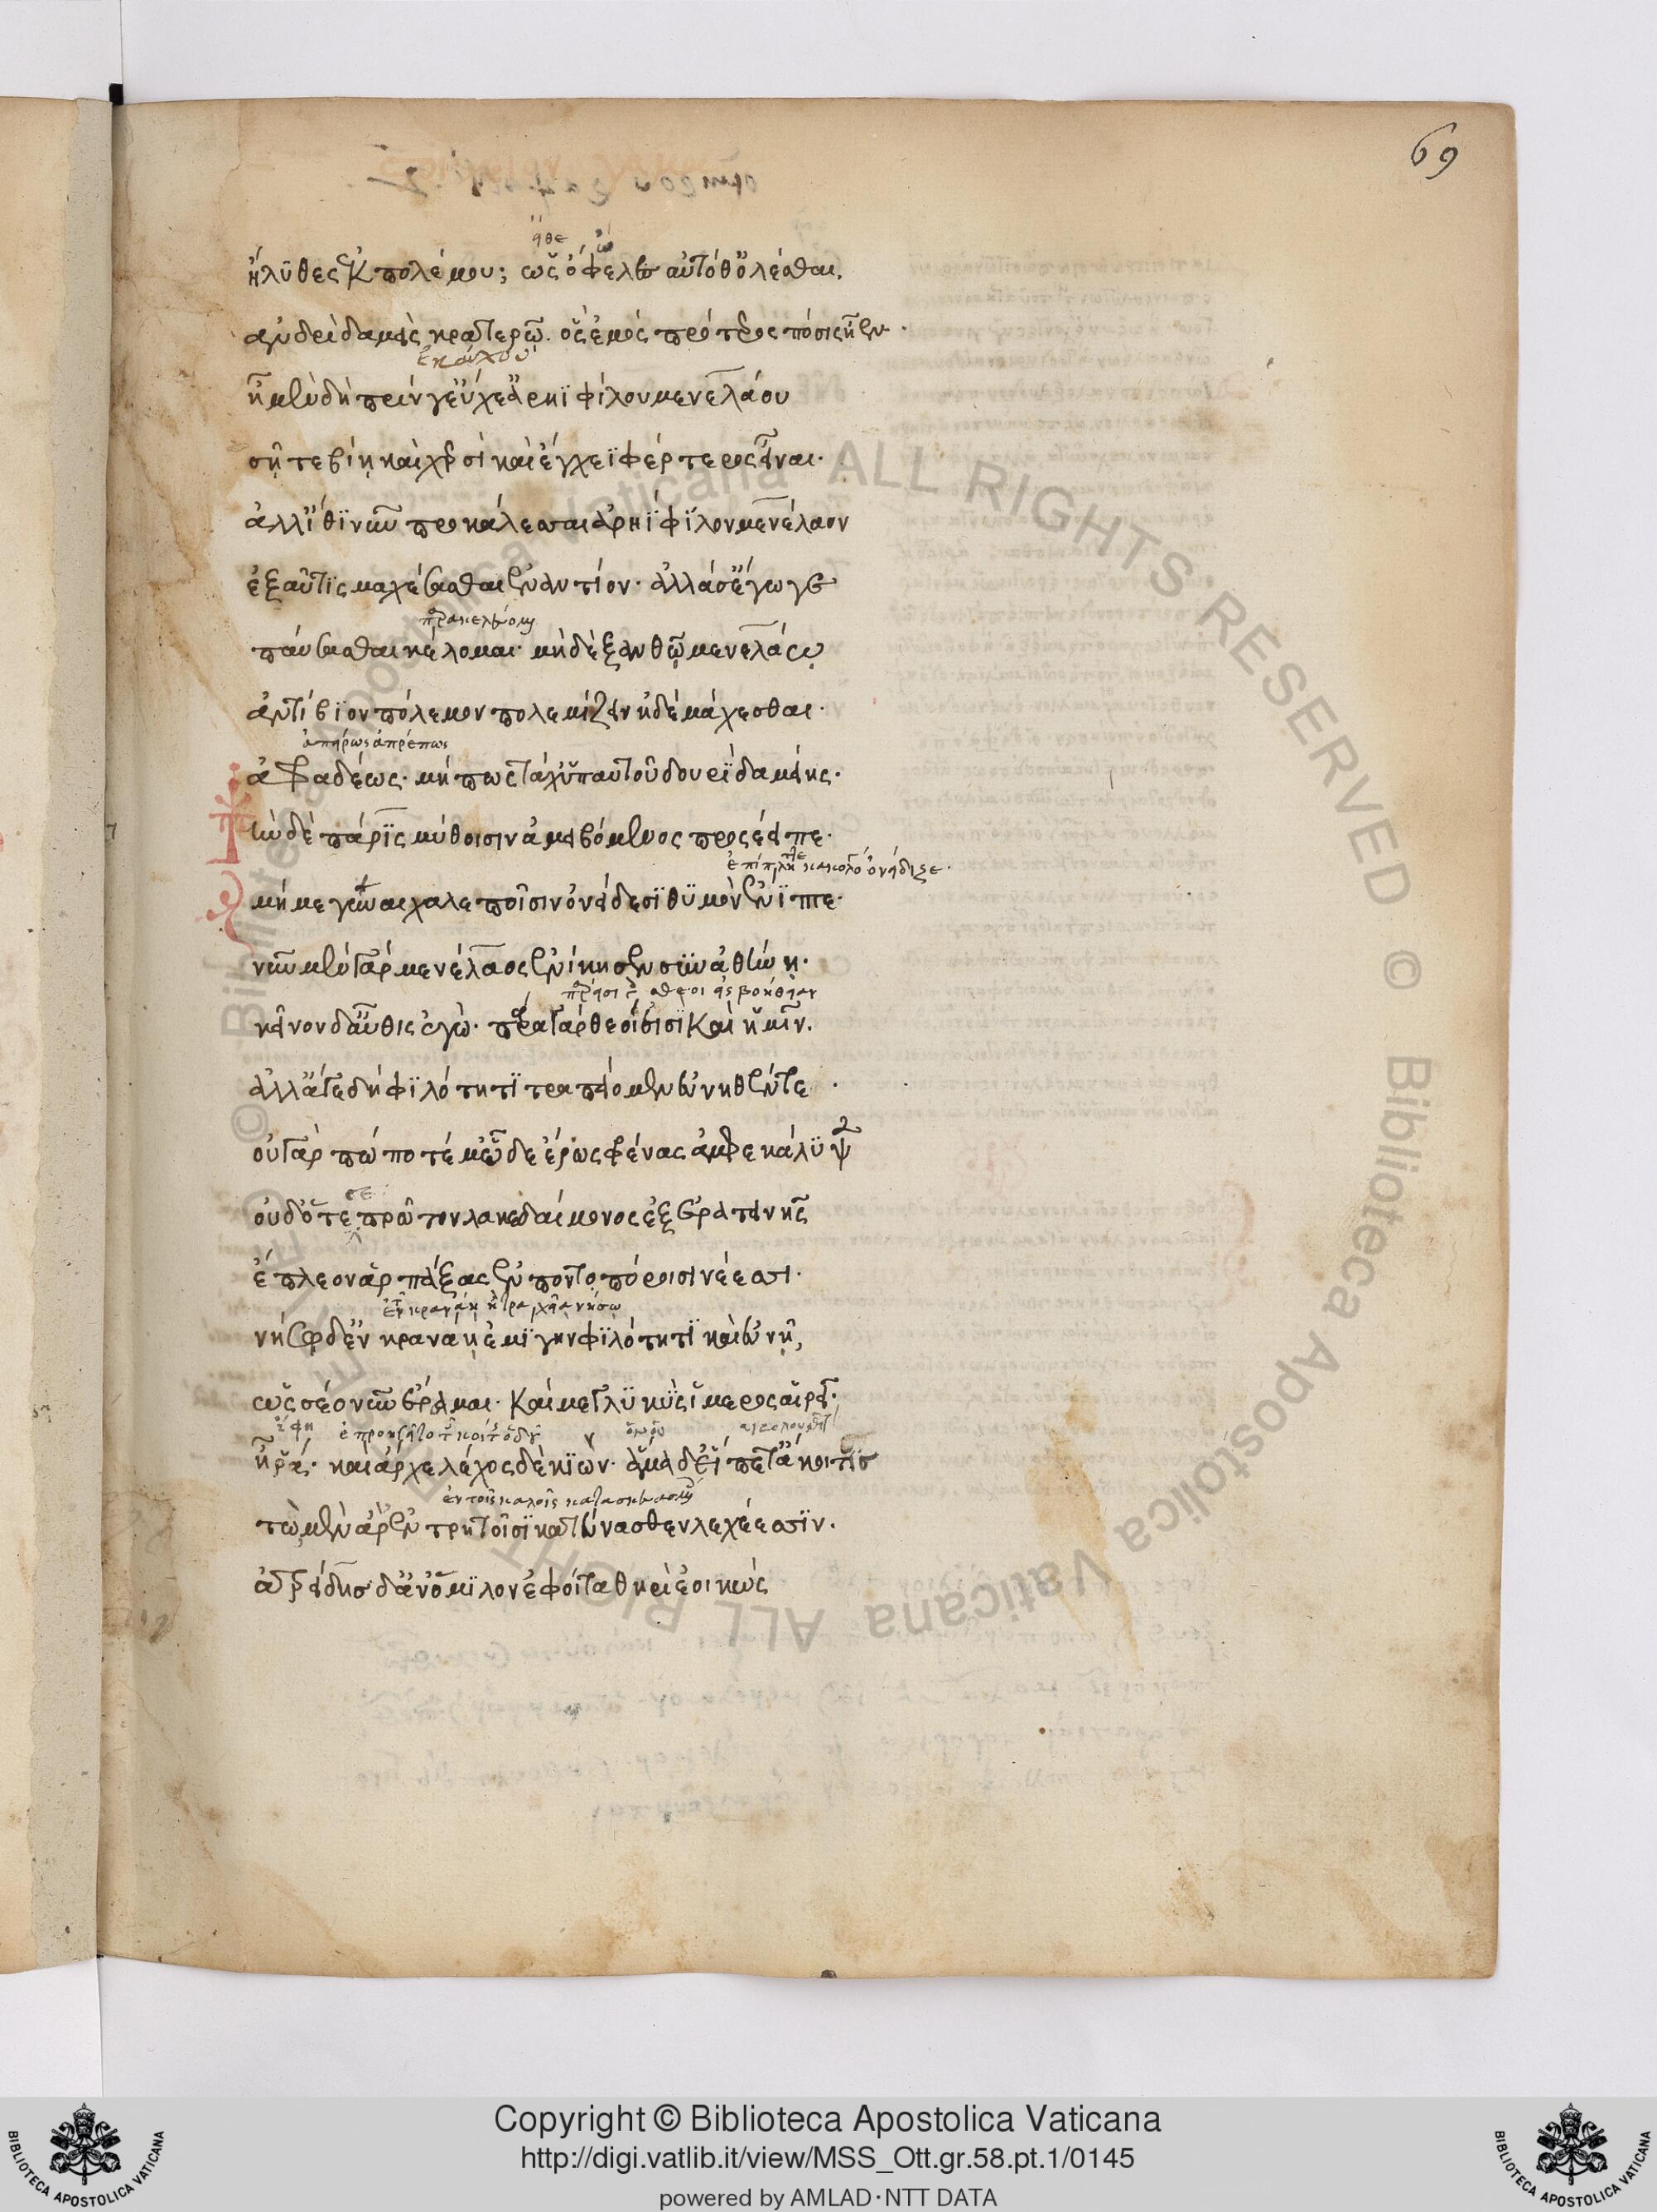 69
εἴθε
ἤλυθες ἐκ πολέμου; ὡς ὄφελες αὐτόθ' ὀλέσθαι,
ἀνδρὶ δαμεὶς κρατερῷ. ὃς ἐμὸς πρότερος πόσις ἦεν.
ἐκαυχῶ
ἦ μὲν δὴ πρίν γ' εὔχε' ἀρηϊφίλου μενελάου
σῇ τε βίῃ καὶ χερσὶ καὶ ἔγχεϊ φέρτερος εἶναι.
ἀλλ' ἴθι νῦν προκάλεσσαι ἀρηΐφιλον μενέλαον
ἐξαῦτις μαχέσασθαι ἐναντίον. ἀλλά σ' ἔγωγε
παρακελεύομαι
παύσασθαι κέλομαι. μὴδὲ ξανθῷ μενελάῳ
ἀντίβιον πόλεμον πολεμίζειν ἠδὲ μάχεσθαι.
ἀπείρως ἀπρέπως
ἀφραδέως. μή πως τάχ' ὑπ' αὐτοῦ δουρὶ δαμείης.
τὴν δὲ πάρις μύθοισιν ἀμειβόμενος προσέειπε.
μή με γύναι χαλεποῖσιν ὀνείδεσι θυμὸν ἔνιπτε.
νῦν μὲν γὰρ μενέλαος ἐνίκησεν σὺν ἀθήνῃ.
κεῖνον δ' αὖθις ἐγώ. παρὰ γὰρ θεοί εἰσι καὶ ἡμῖν.
ἀλλ' ἄγε δὴ φιλότητι τραπείομεν εὐνηθέντε.
οὐ γάρ πώ ποτέ μ' ὧδε ἔρως φρένας ἀμφεκάλυψεν
σε
οὐδ' ὅτε πρῶτον λακεδαίμονος ἐξ ἐρατεινῆς
ἔπλεον ἁρπάξας ἐν ποντοπόροισι νέεσσι.
νήσῳ δ' ἐν κραναῇ ἐμίγην φιλότητι καὶ εὐνῇ,
ὥς σέο νῦν ἔραμαι. καί με γλυκὺς ἵμερος αἱρεῖ.
ἔφη
ἦ ῥά. καὶ ἄρχε λέχοσδε κιών. ἅμα δ' εἵπετ' ἄκοιτις
ἐν τοῖς καλοῖς
τὼ μὲν ἄρ' ἐν τρητοῖσι κατεύνασθεν λεχέεσσιν.
ἀτρείδης δ' ἀν' ὅμιλον ἐφοίτα θηρὶ ἐοικώς
Copyright © Biblioteca Apostolica Vaticana
http://digi.vatlib.it/view/MSS_Ott.gr.58.pt.1/0145
powered by AMLAD·NTT DATA
BIBLIOTECA APOSTOLICA VATICANA
BIBLIOTECA APOSTOLICA VATICANA
© Biblioteca Apostolica Vaticana ALL RIGHTS RESERVED © Biblioteca Apostolica Vaticana ALL RIGHTS RESERVED